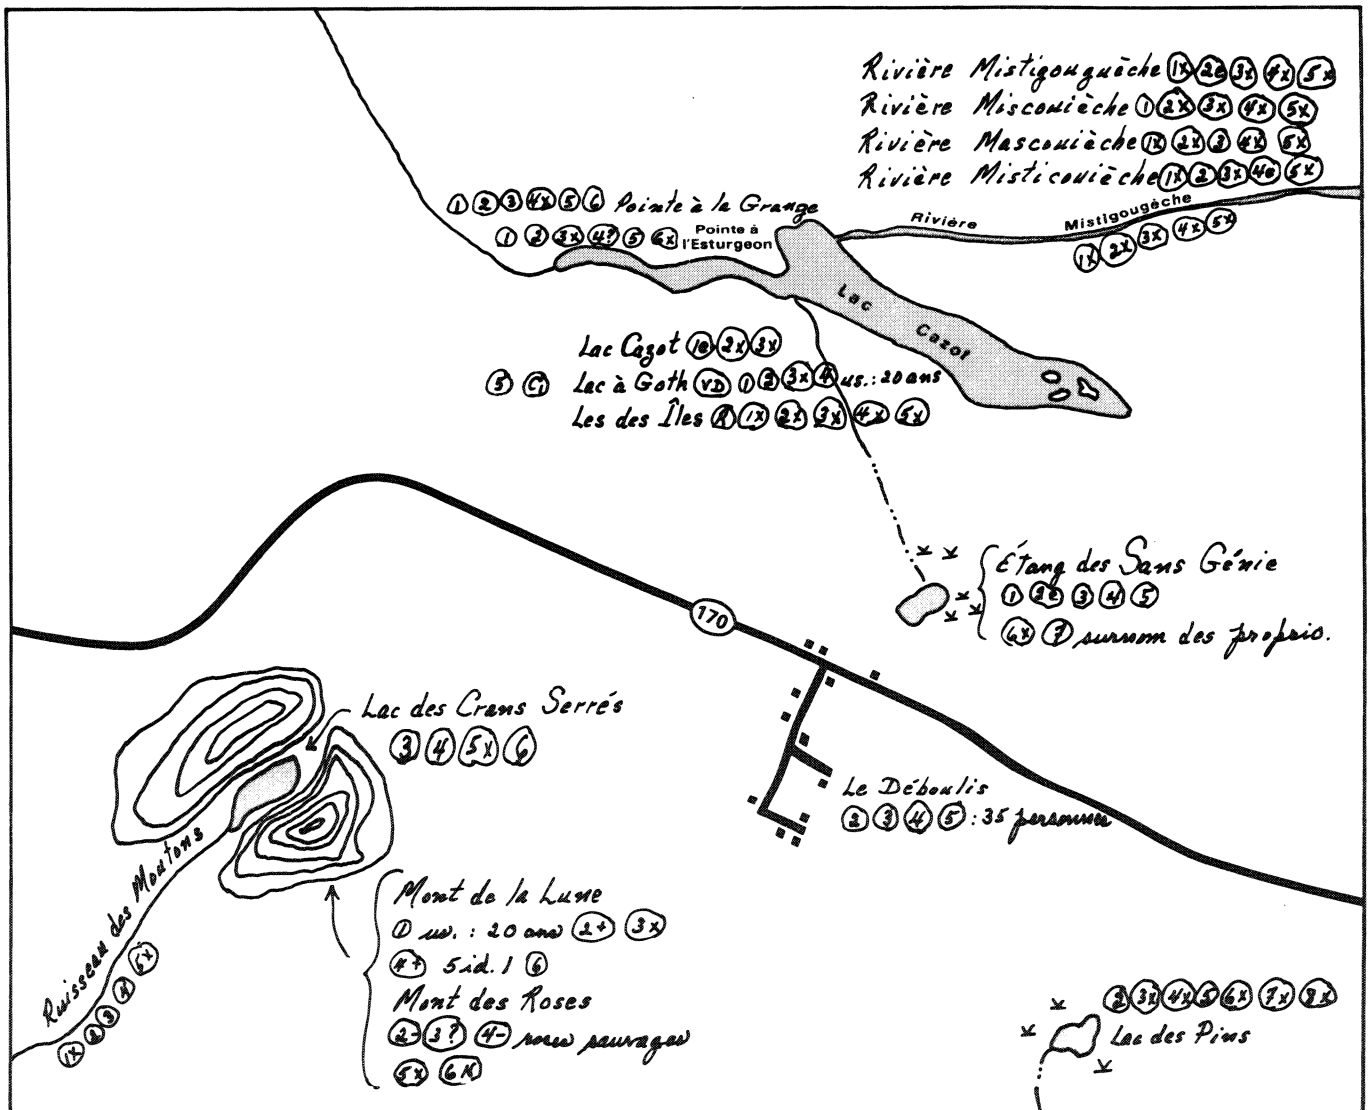 Rivière Mistigouguèche 1x 2e 3x 4x 5x
Rivière Miscouièche 1 2x 3x 4x 5x
Rivière Mascouièche 1x 2x 3 4x 5x
Rivière Misticouièche 1x 2 3x 4e 5x
1 2 3 4x 5 6 Pointe à la Grange
1 2 3x 4? 5 6x Pointe à l'Esturgeon
Rivière Mistigougèche
1x 2x 3x 4x 5x
Lac Cazot
Lac Cazot 1e 2x 3x
5 C1 Lac à Goth VD 1 2 3x 4 us.: 20 ans
Les des Îles R 1x 2x 3x 4x 5x
Étang des Sans Génie
1 2e 3 4 5
6x 7 surnom des proprio.
170
Lac des Crans Serrés
3 4 5x 6
Le Déboulis
2 3 4 5 : 35 personnes
Ruisseau des Moutons
1x 2 3 4 5x
Mont de la Lune
1 us. : 20 ans 2+ 3x
4+ 5 id. 1 6
Mont des Roses
2- 3? 4- roses sauvages
5x 6N
2 3x 4x 5 6x 7x 8x
Lac des Pins